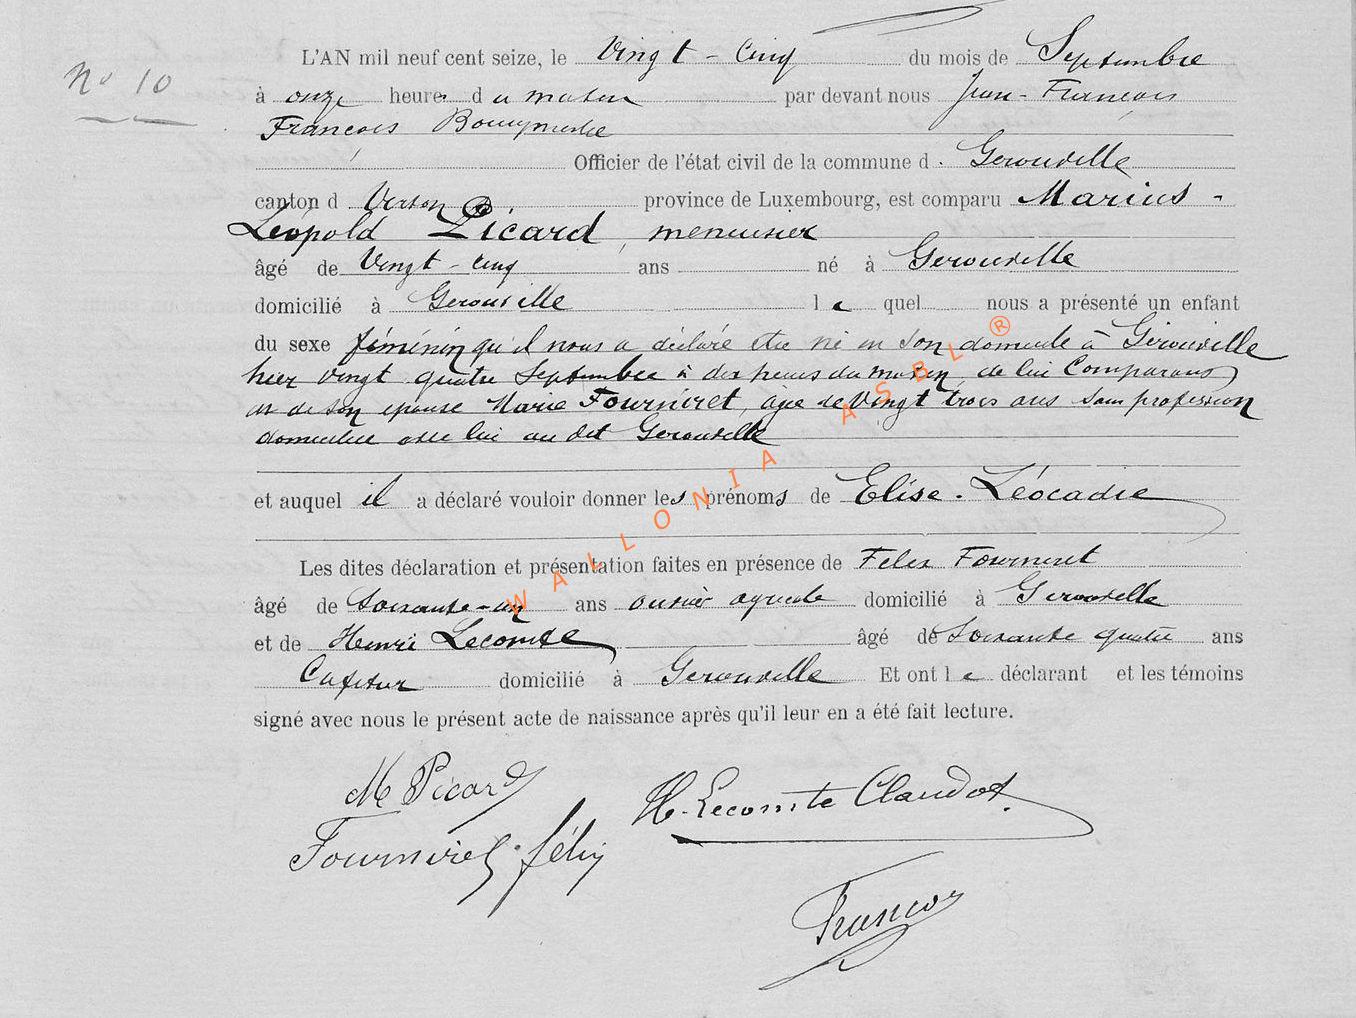 N° 10
L'AN mil neuf cent seize, le Vingt-Cinq du mois de Septembre
à onze heures du matin par devant nous Jean-François
François Bourgmestre
Officier de l'état civil de la commune d. Gérouville
canton d Virton province de Luxembourg, est comparu Marius-
Léopold Picard, menuisier
âgé de Vingt-cinq ans né à Gérouville
domicilié à Gérouville le quel nous a présenté un enfant
du sexe féminin qu'il nous a déclaré être né en son domicile à Gérouville
hier vingt quatre Septembre à dix heures du matin, de lui Comparant
et de son épouse Marie Fourniret, âgée de Vingt trois ans sans profession
domiciliée avec lui au dit Gérouville
et auquel il a déclaré vouloir donner les prénoms de Elise-Léocadie
Les dites déclaration et présentation faites en présence de Félix Fourniret
âgé de Soixante-un ans ouvrier agricole domicilié à Gérouville
et de Henri Lecomte âgé de Soixante quatre ans
Cafetier domicilié à Gérouville Et ont le déclarant et les témoins
signé avec nous le présent acte de naissance après qu'il leur en a été fait lecture.
M Picard
H. Lecomte Claudot
Fourniret félix
François
WALLONIA ASBL ®